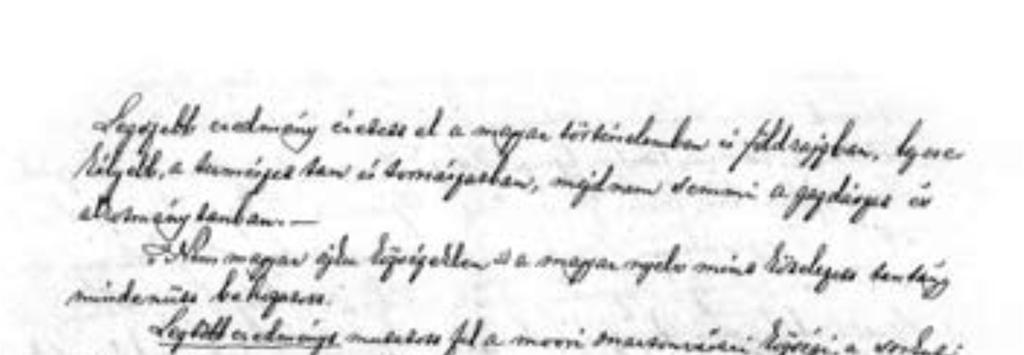 Legjobb eredmény éretett el a magyar történelemben és földrajzban, legcse-
kélyebb, a természettan és tornászatban, majdnem semmi a gazdászat és
alkotmánytanban. —
Nem magyar ajku községekben is a magyar nyelv mint kötelezett tantárgy
mindenütt behozatott.
Legtöbb eredményt mutatott fel a moóri községi, a